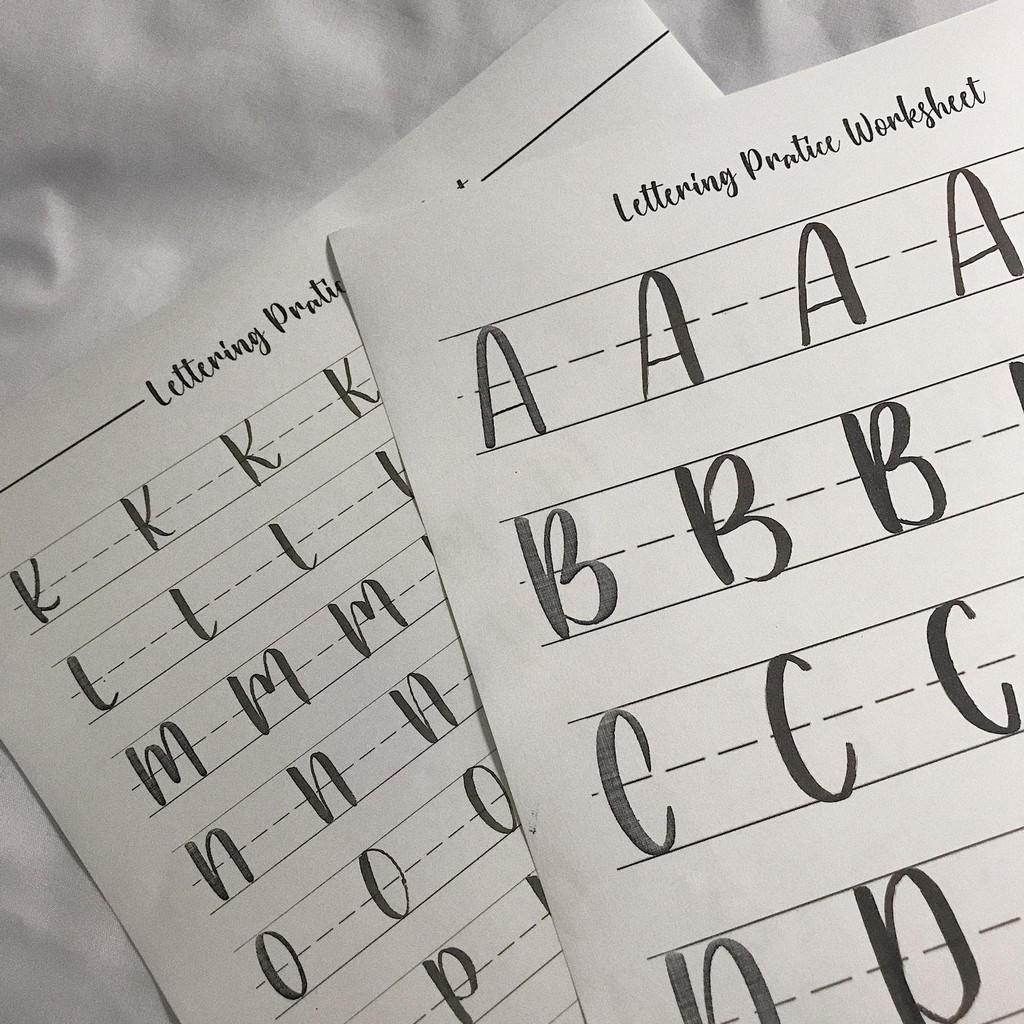 Lettering Pratice Worksheet
A A A A
B B B
C C C
D D
Lettering Pratic
K K K K
L L L L
M M M
N N N
O O O
P